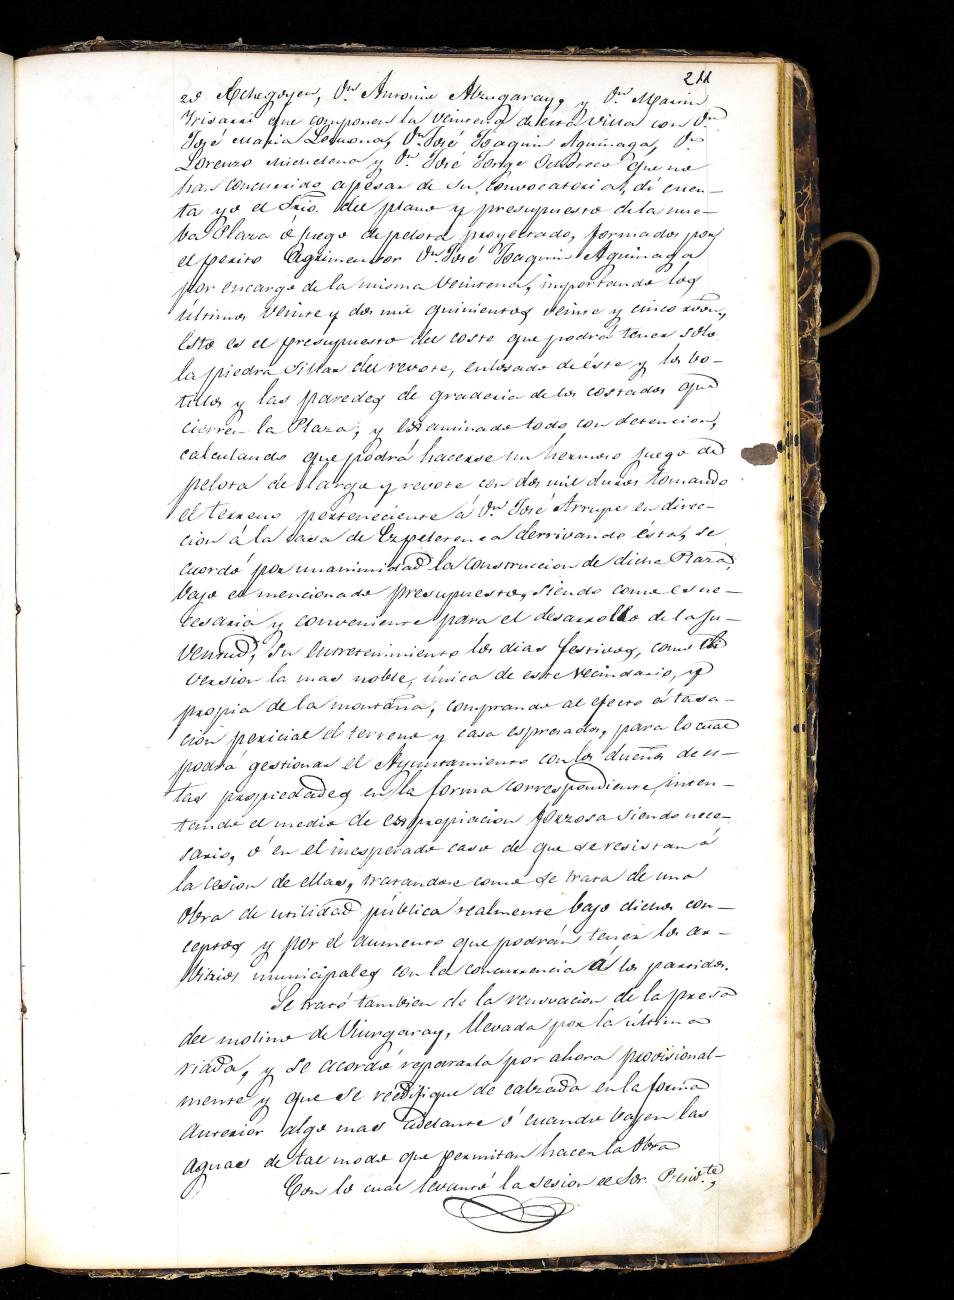 211
Echegoyen, Dn Antonio Alzugaray, y Dn Martin
Yrisarri que componen la Veintena de esta villa con Dn
José Maria Lecuona, Dn José Joaquin Aguinaga, Dn
Lorenzo Michelena y Dn José Jorge que no
han concurrido apesar de su convocatoria, di cuen-
ta yo el Srio. del plano y presupuesto de la nue-
ba Plaza ó juego de pelota proyectado, formados por
el perito Agrimensor Dn José Joaquin Aguinaga
por encargo de la misma Veintena, importando los
últimos veinte y dos mil quinientos veinte y cinco rvon,
Esto es el presupuesto del coste que podrá tener solo
la piedra sillar del revote, enlosado de éste y los bo-
tillos y las paredes de graderia de los costados que
cierren la Plaza; y examinado todo con detencion,
calculando que podrá hacerse un hermoso juego de
pelota de largo y revote con dos mil duros tomando
el terreno perteneciente á Dn José Arrupe en direc-
cion á la casa de Ezpelerenea derrivando ésta, se
cuordó por unanimidad la construccion de dicha Plaza,
bajo el mencionado presupuesto, siendo como es ne-
cesaria y conveniente para el desarrollo de la Ju-
ventud, su entretenimiento los dias festivos, como di
version la mas noble, única de este vecindario, y
propia de la montaña, comprando al efecto á tasa-
cion pericial el terreno y casa espresados, para lo cual
podrá gestionar el Ayuntamiento con los dueños de es-
tas propiedades en la forma correspondiente, inten-
tando el medio de expropiacion forzosa siendo nece-
sario, ó en el inesperado caso de que se resistan á
la cesion de ellas, tratandose como se trata de una
obra de utilidad pública realmente bajo dichos con-
ceptos y por el aumento que podrán tener los ar-
vitrios municipales con la concurrencia á los partidos.
Se trató tambien de la renovacion de la presa
del molino de Viurgaray, llevada por la última
riada, y se acordó repararla por ahora provisional-
mente y que se reedifique de calzada en la forma
anterior algo mas adelante ó cuando bajen las
aguas de tal modo que permitan hacer la obra
Con lo cual levantó la sesion el Sor. Presidte,